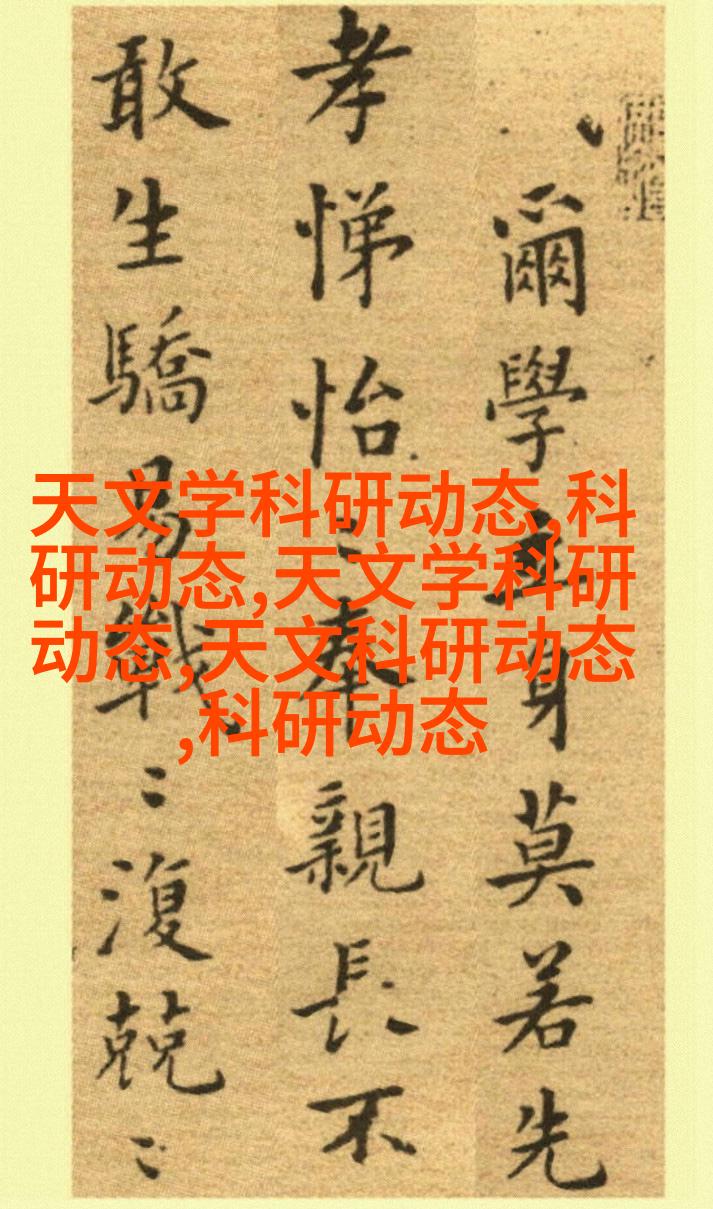 爾學立身莫若先
孝悌怡〻奉親長不
敢生驕易戰〻復兢〻
天文学科研动态,科
研动态,天文学科研
动态,天文科研动态
,科研动态